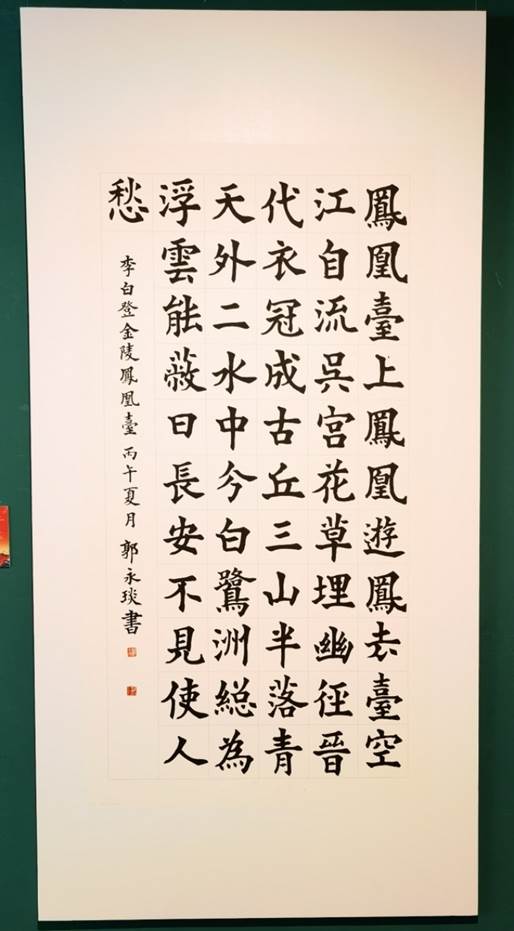 鳳凰臺上鳳凰遊鳳去臺空
江自流吳宮花草埋幽徑晉
代衣冠成古丘三山半落青
天外二水中今白鷺洲緫為
浮雲能蔽日長安不見使人
愁
李白登金陵鳳凰臺 丙午夏月 郭永琰書